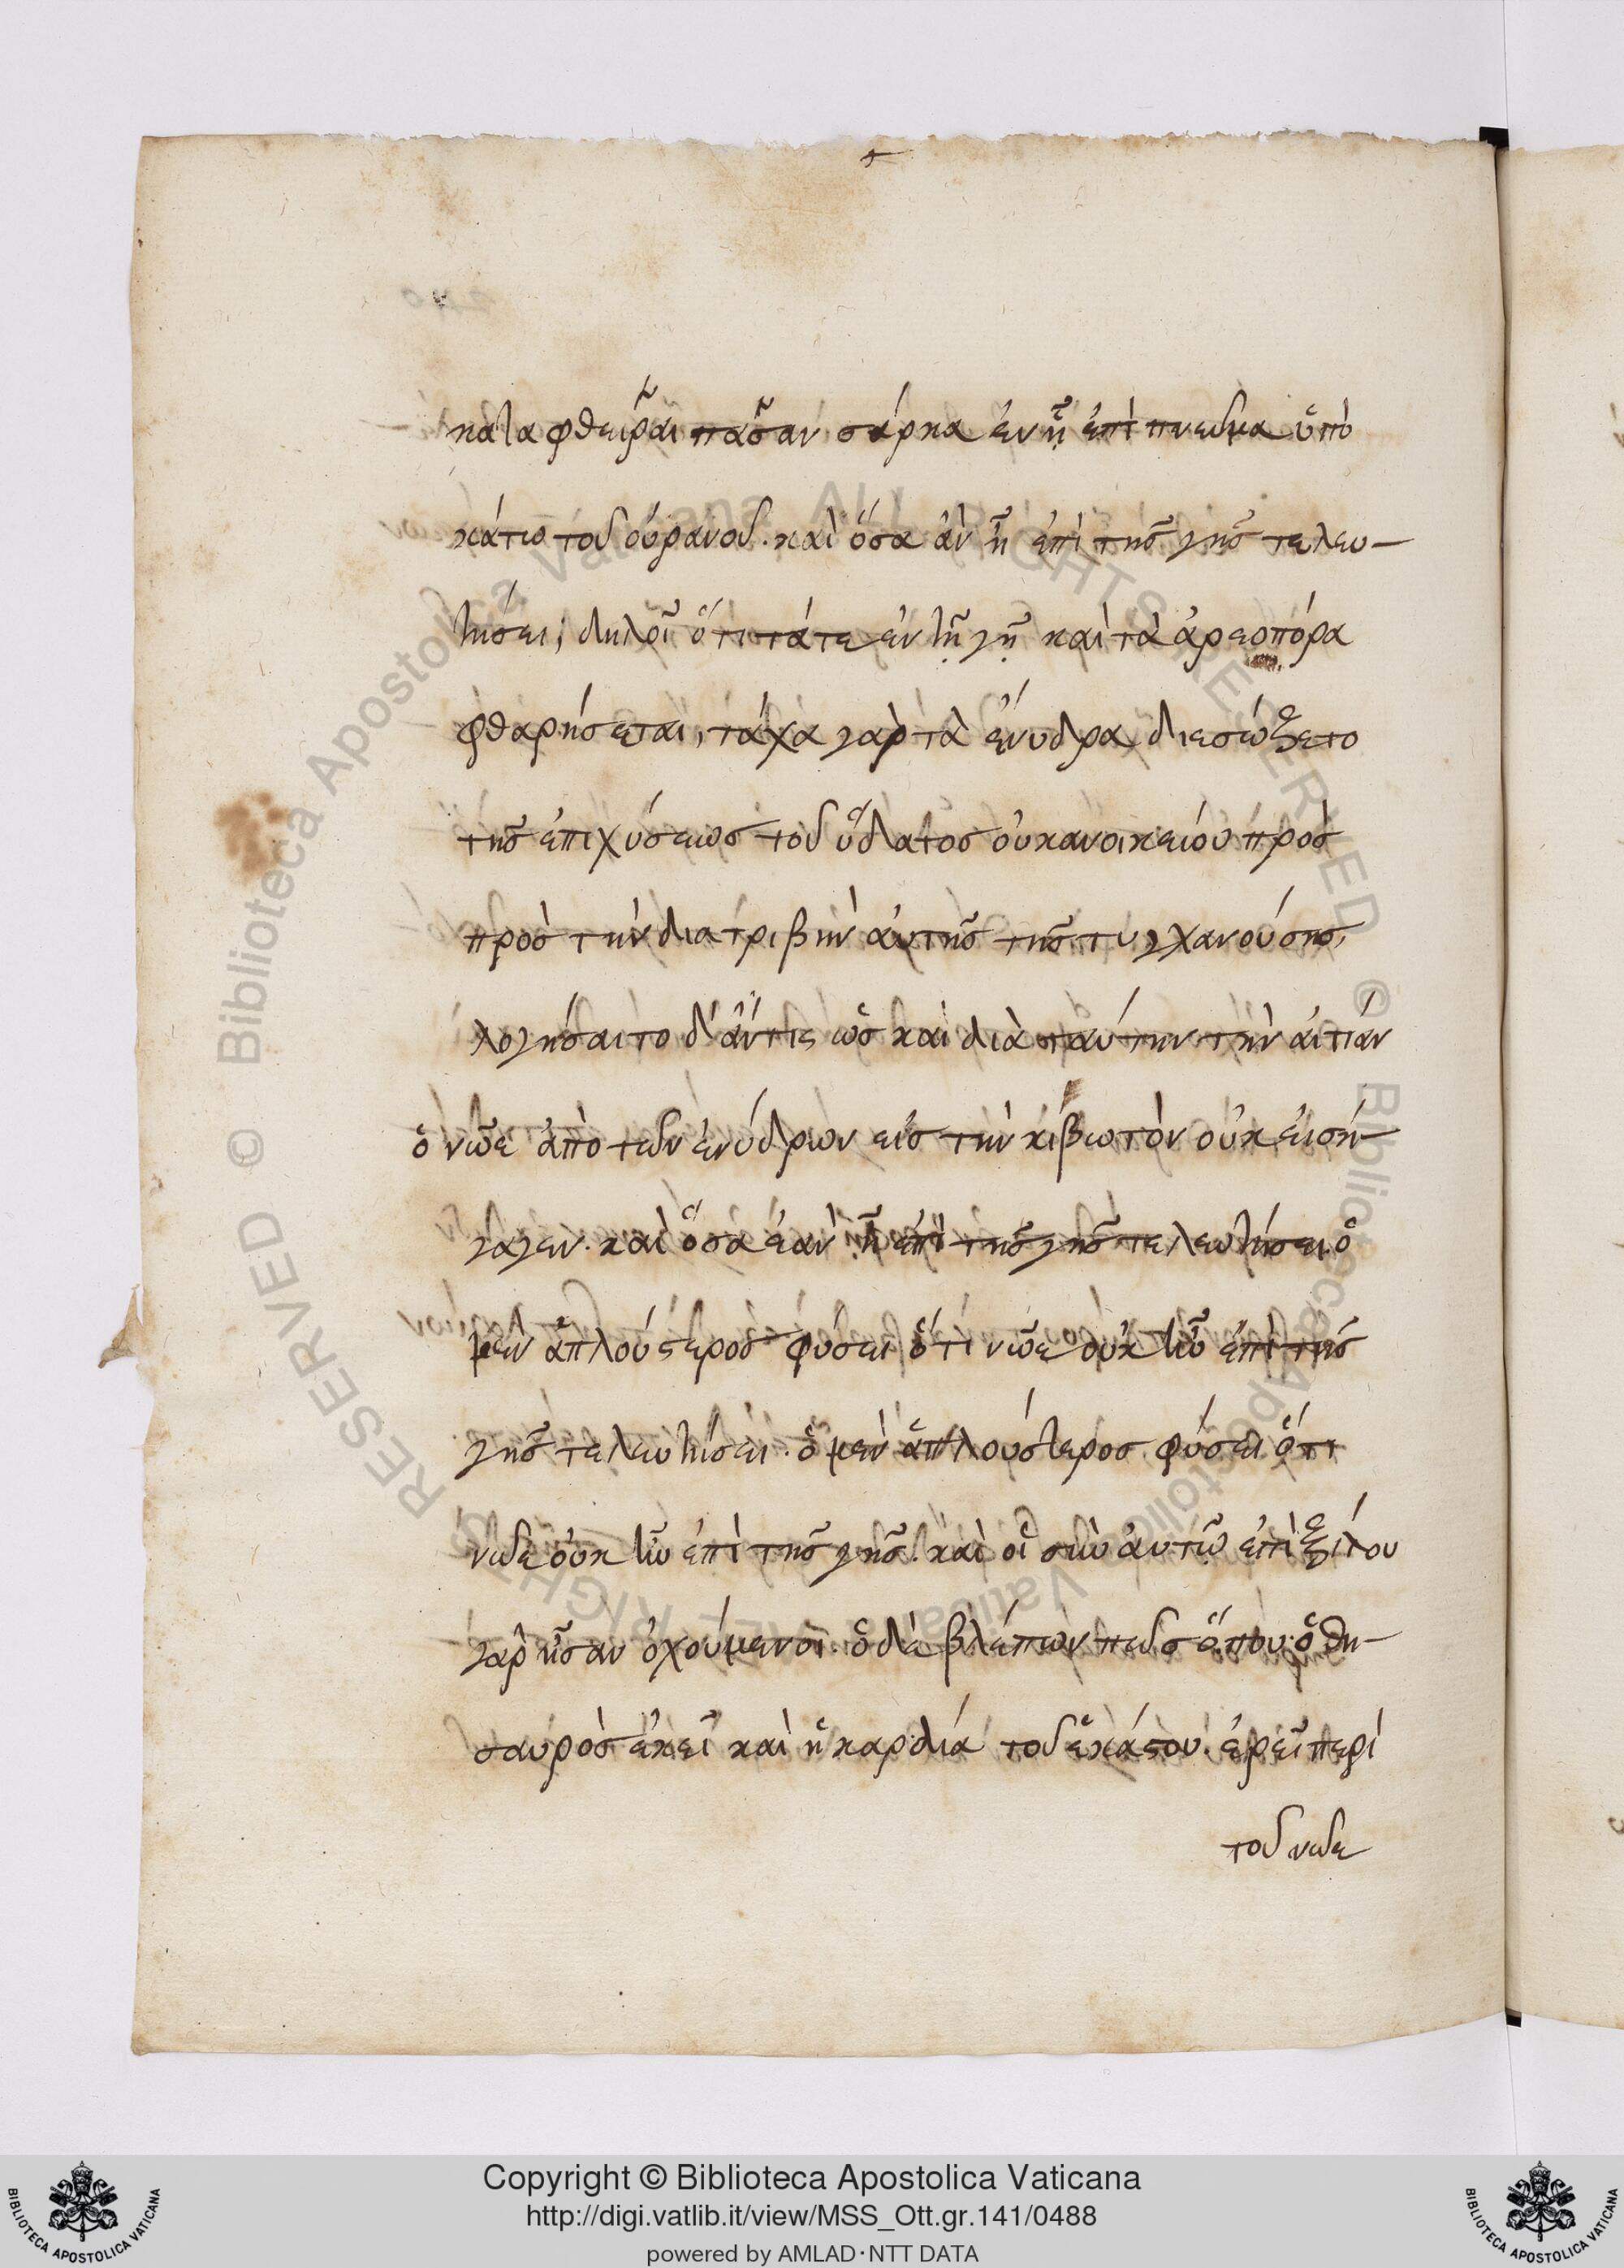 καταφθεῖραι πᾶσαν σάρκα ἐν ᾗ ἐπὶ πνεῦμα ὑπὸ
κάτω τοῦ οὐρανοῦ. καὶ ὅσα ἀν ᾖ ἐπὶ τῆς γῆς τελευ-
τήσει, δηλοῖ ὅτι τάτε ἐν τῇ γῇ καὶ τὰ ἀρεοπόρα
φθαρήσεται, τάχα γὰρ τὰ ἔνυδρα διεσώζετο
τῆς ἐπιχύσεως τοῦ ὕδατος οὐκ ἀνοικείου πρὸς
πρὸς τὴν διατριβὴν ἀυτῆς τῆς τυγχανούσης,
λογήσαιτο δ' ἄντις ὡς καὶ διὰ ταύτην τὴν ἀιτίαν
ὁ νῶε ἀπὸ τῶν ἐνύδρων εἰς τὴν κιβωτὸν οὐκ εἰσή-
γαγεν. καὶ ὅσα ἐὰν ᾖ ἐπὶ τῆς γῆς τελευτήσει. ὁ
μὲν ἁπλούστερος φύσει ὅτι νῶε οὐκ ἦν ἐπὶ τῆς
γῆς τελευτήσει. ὁ μὲν ἁπλούστερος φύσει ὅτι
νῶε οὐκ ἦν ἐπὶ τῆς γῆς. καὶ οἱ σὺν ἀυτῷ ἐπὶ ξύλου
γὰρ ἦσαν ὀχούμενοι. ὁ δὲ βλέπων πῶς ὅπου ὁ θη-
σαυρὸς ἐκεῖ καὶ ἡ καρδιά τοῦ ἑκάστου. ἐρεῖ περί
τοῦ νῶε
Copyright © Biblioteca Apostolica Vaticana
http://digi.vatlib.it/view/MSS_Ott.gr.141/0488
powered by AMLAD·NTT DATA
BIBLIOTECA APOSTOLICA VATICANA
BIBLIOTECA APOSTOLICA VATICANA
© Biblioteca Apostolica Vaticana ALL RIGHTS RESERVED
© Biblioteca Apostolica Vaticana ALL RIGHTS RESERVED